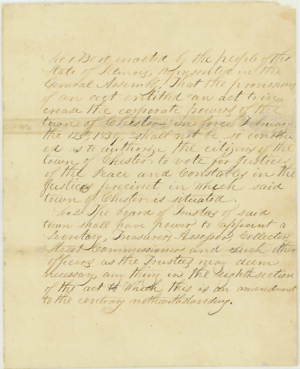 Sec 1 Be it enacted by the people of the
State of Illinois, represented in the
General Assembly, That the provisions
of an act entitled an act to in
crease the corporate powers of the
town of Chester in force
the 12th 1839, shall not be so constru
ed as to authorize the citizens of the
town of Chester to vote for Justices
of the Peace and Constables in the
Justices precinct in which said
town of Chester is situated.
Sec 2 The board of Trustees of said
town shall have power to appoint a
Secretary, Treasurer, Assessor, Collector
Street Commissioner and such other
officers as the Trustees may deem
necessary any thing in the Eighth section
of the act to which this is an amendment
to the contrary notwithstanding.